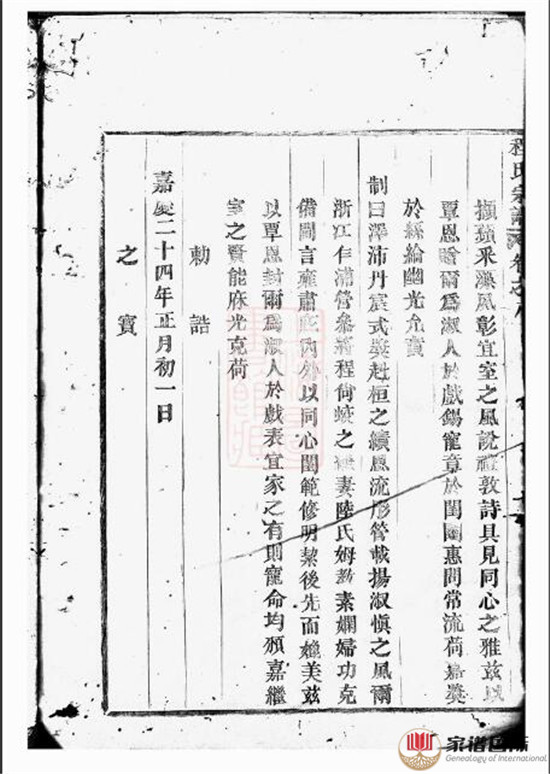 程氏宗譜 卷之八
擷蘋采藻夙彰宜室之風說禮敦詩具見同心之雅茲以
覃恩贈爾為淑人於戲錫寵章於閨閫惠問常流荷嘉獎
於絲綸幽光允賁
制曰澤沛丹宸式獎赳桓之績恩流彤管載揚淑慎之風爾
浙江乍浦營參將程尚蛟之繼妻陸氏姆教素嫻婦功克
備閫言雍肅庇內外以同心閨範修明絜後先而媲美茲
以覃恩封爾為淑人於戲表宜家之有則寵命均頒嘉繼
室之賢能庥光克荷
勅誥
嘉慶二十四年正月初一日
之寶
家谱
Genealogy of International